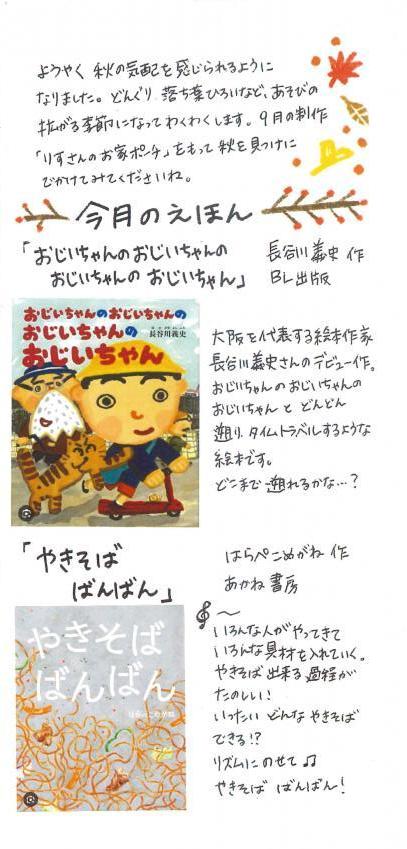 ようやく 秋の気配を感じられるように
なりました。どんぐり 落ち葉ひろいなど、あそびの
拡がる季節になってわくわくします。9月の制作
「りすさんのお家ポーチ」をもって秋を見つけに
でかけてみてくださいね。
今月のえほん
「おじいちゃんのおじいちゃんの
おじいちゃんのおじいちゃん」
長谷川義史 作
BL出版
おじいちゃんのおじいちゃんの
おじいちゃんの
おじいちゃん
長谷川義史
大阪を代表する絵本作家
長谷川義史さんのデビュー作。
おじいちゃんのおじいちゃんの
おじいちゃんと どんどん
遡り、タイムトラベルするような
絵本です。
どこまで遡れるかな…?
「やきそば
ばんばん」
はらぺこめがね 作
あかね書房
やきそば
ばんばん
はらぺこめがね
いろんな人がやってきて
いろんな具材を入れていく。
やきそば 出来る過程が
たのしい!
いったい どんな やきそば
できる!?
リズムにのせて♫
やきそば ばんばん!